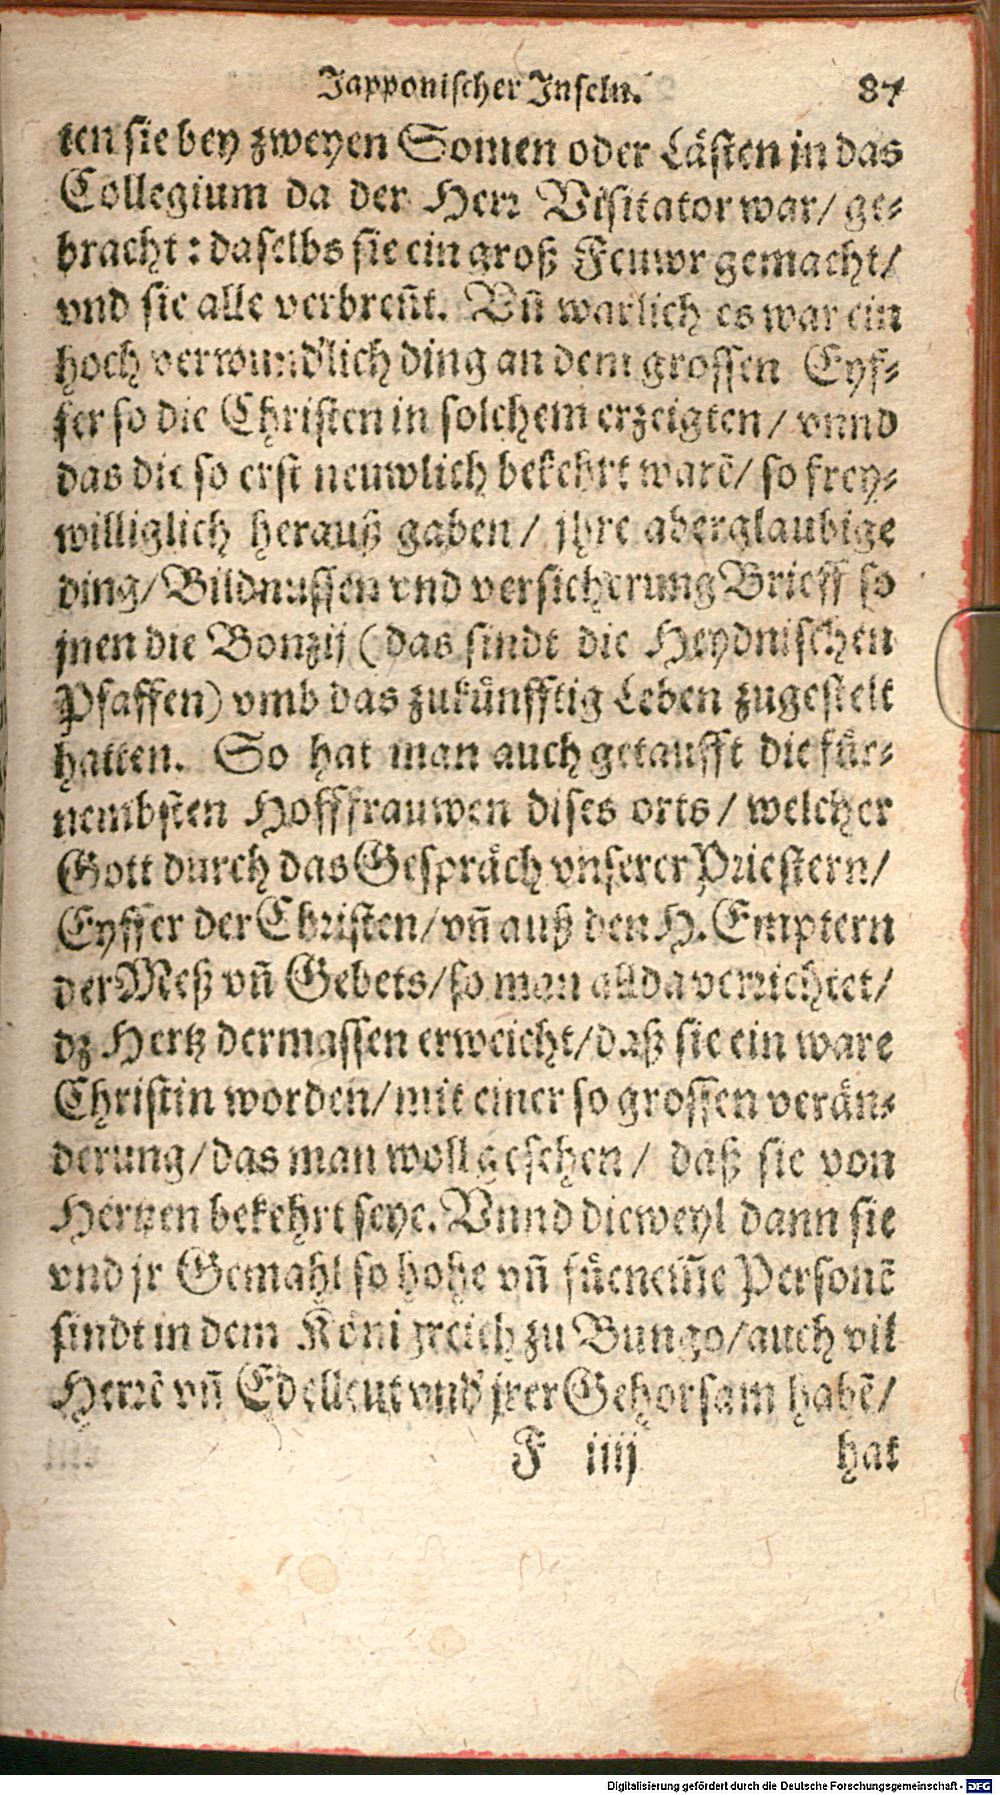 Japponischer Inseln. 87
ten sie bey zweyen Somen oder Lästen in das
Collegium da der Herr Visitator war/ ge-
bracht: daselbs sie ein groß Feuwr gemacht/
vnd sie alle verbreñt. Vñ warlich es war ein
hoch verwund'lich ding an dem grossen Eyf-
fer so die Christen in solchem erzeigten/ vnnd
das die so erst neuwlich bekehrt warẽ/ so frey-
williglich herauß gaben/ jhre aberglaubige
ding/ Bildnussen vnd versicherung Brieff so
jnen die Bonzij (das sindt die Heydnischen
Pfaffen) vmb das zukünfftig Leben zugestelt
hatten. So hat man auch getaufft die für-
nembsten Hofffrauwen dises orts/ welcher
Gott durch das Gespräch vnserer Priestern/
Eyffer der Christen/ vñ auß den H. Emptern
der Meß vñ Gebets/ so man allda verrichtet/
dz Hertz dermassen erweicht/ daß sie ein ware
Christin worden/ mit einer so grossen verän-
derung/ das man woll gesehen/ daß sie von
Hertzen bekehrt seye. Vnnd dieweyl dann sie
vnd jr Gemahl so hohe vñ fürnem̃e Personẽ
sindt in dem Königreich zu Bungo/ auch vil
Herrẽ vñ Edelleut vnd' jrer Gehorsam habẽ/
F iiij hat
Digitalisierung gefördert durch die Deutsche Forschungsgemeinschaft - DFG